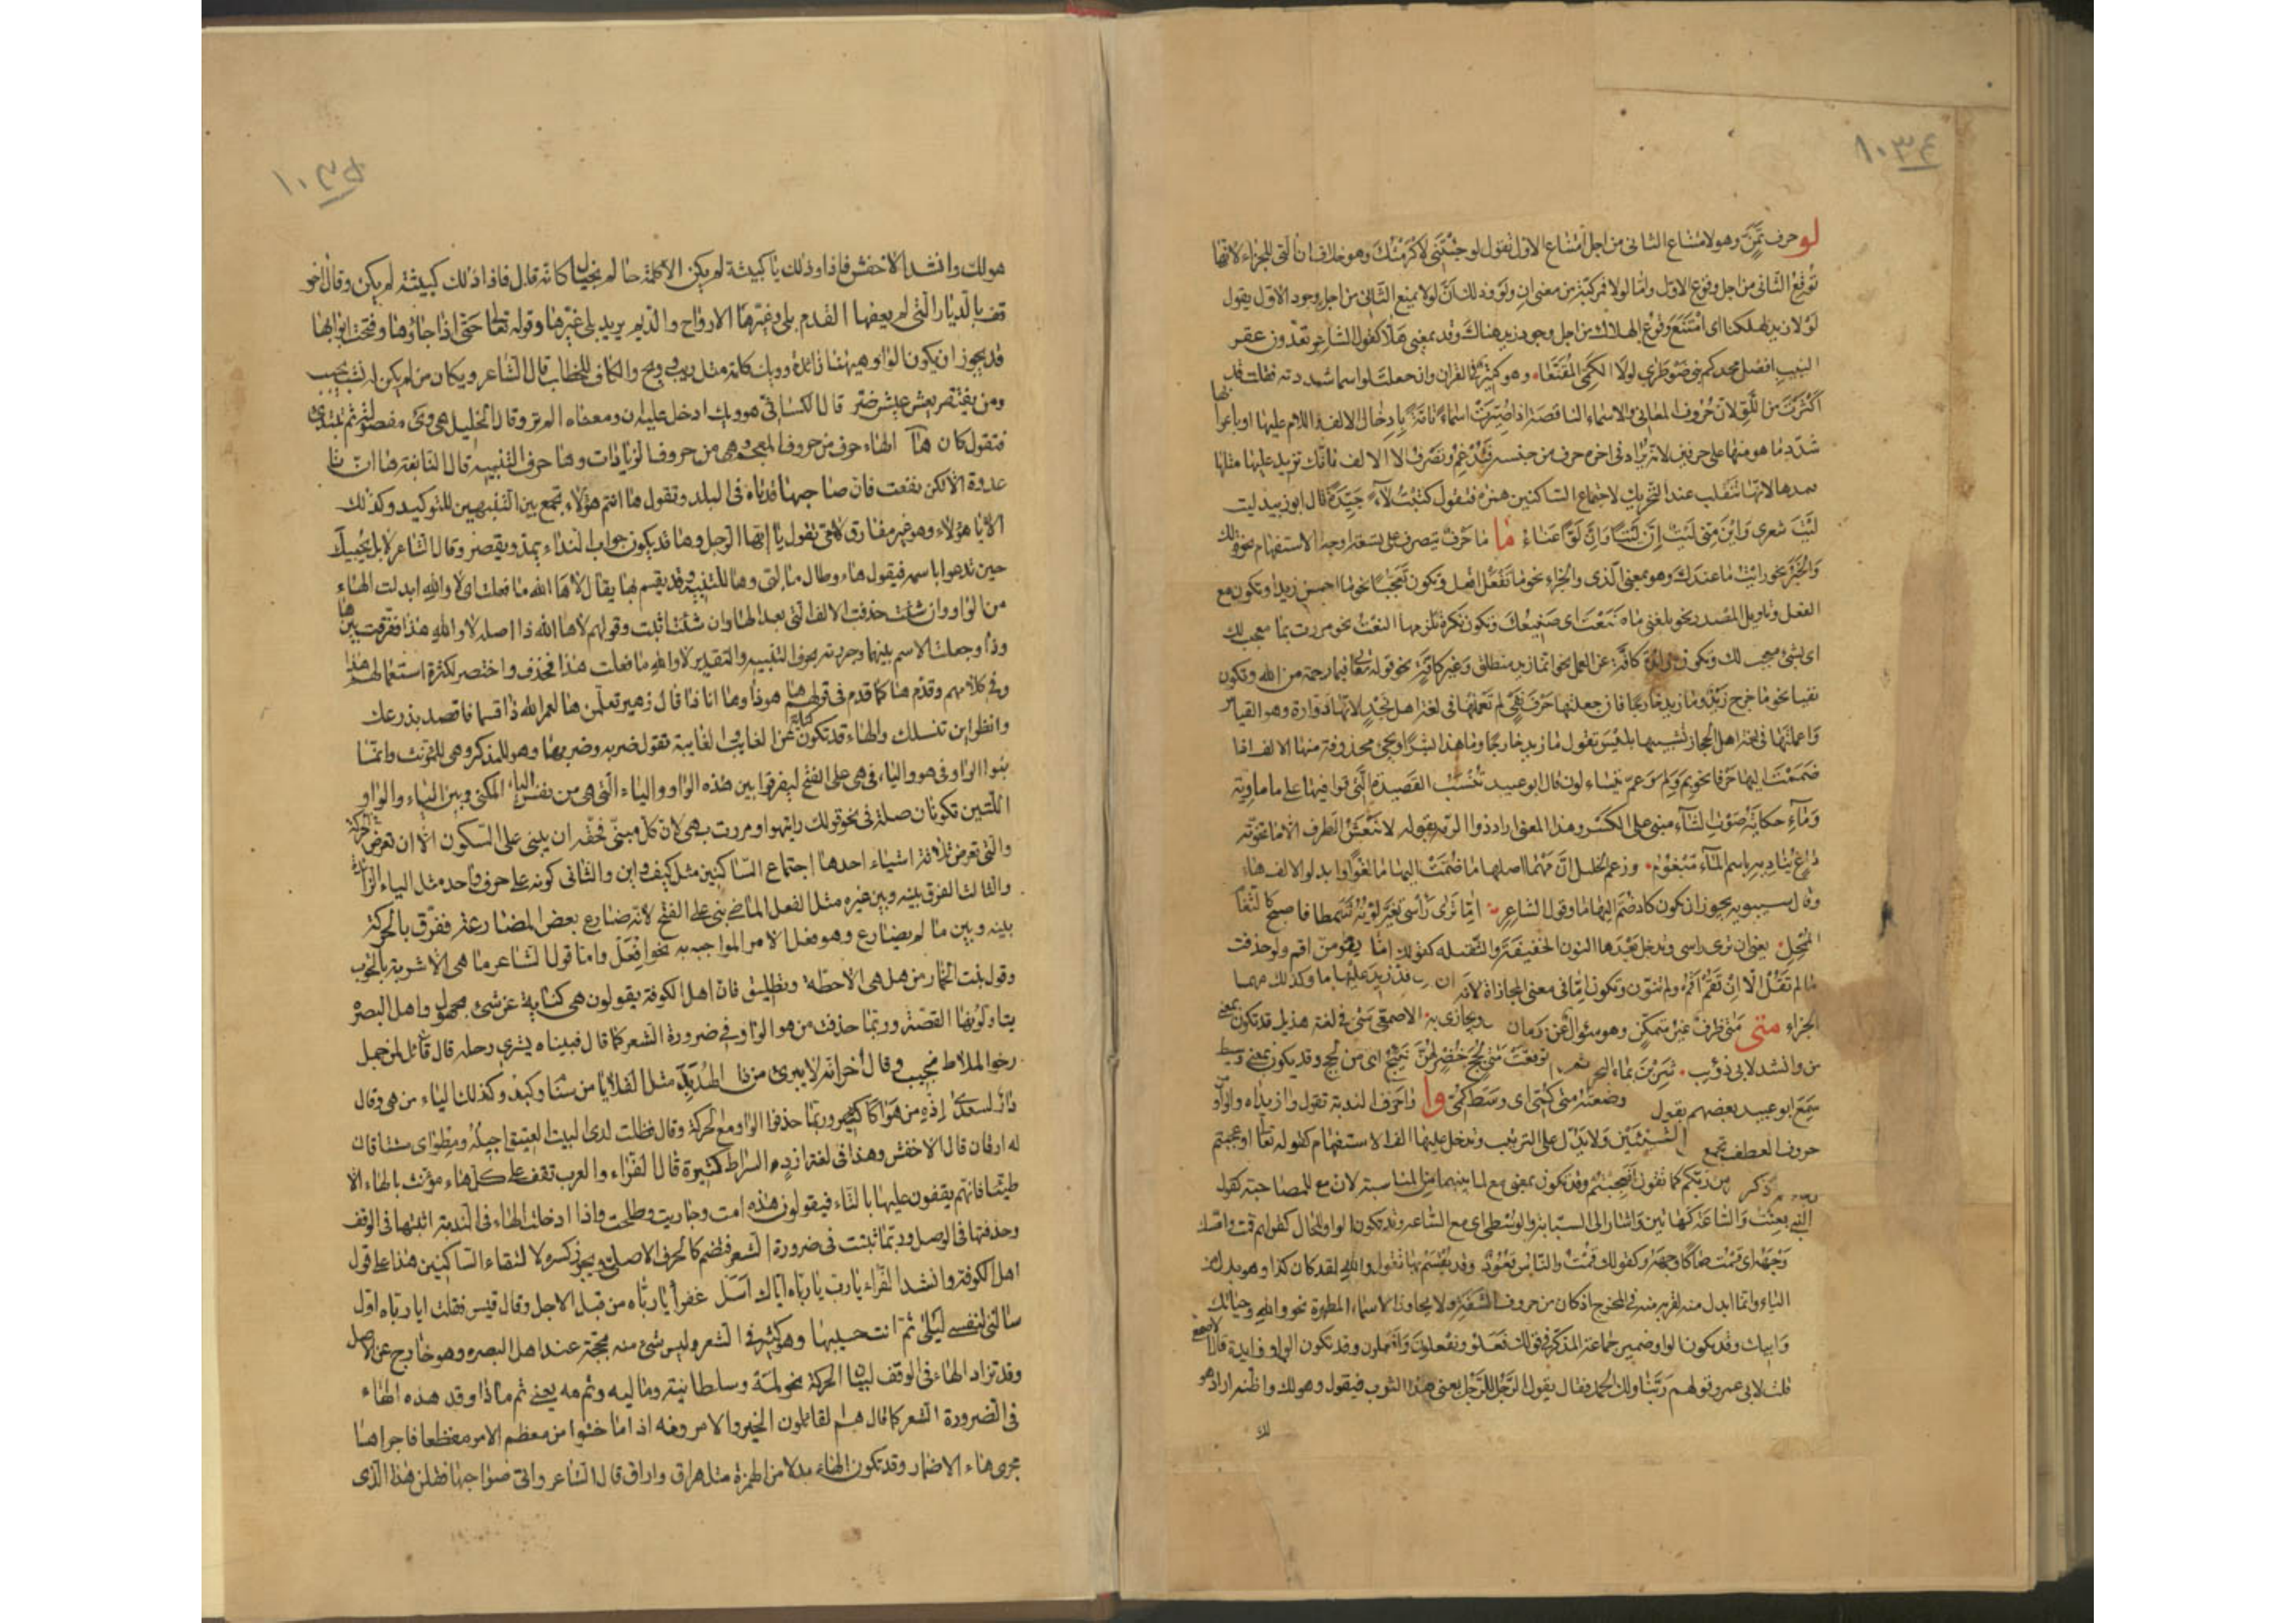 ١٠٣٤
لو حرف تمن وهو لامتناع الثانى من اجل امتناع الاول تقول لو جئتنى لاكرمتك وهو خلاف ان التى للجزاء لانها
توقع الثانى من اجل وقوع الاول واما لولا فمركبة من معنى ان ولو وذلك ان لولا يمنع الثانى من اجل وجود الاول يقول
لولا زيد لهلكنا اى امتنع وقوع الهلاك من اجل وجود زيد هناك وقد بمعنى هلا كقول الشاعر تعدون عقر
النيب افضل مجدكم بنى ضوطرى لولا الكمى المقنعا وهو كثير فى القران وان جعلت لو اسما شددته فقلت قد
اكثرت من اللو لان حروف المعانى والاسماء الناقصة اذا صيرت اسماء تامة بادخال الالف واللام عليها او باعرابها
شدد ما هو منها على حرفين لانه يزاد فى اخره حرف من جنسه فتدغم وتصرف الا الالف فانك تزيد عليها مثلها
فتمدها لانها تنقلب عند التحريك لاجتماع الساكنين همزة فتقول كتبت لاء جيدة قال ابو زبيد ليت
ليت شعرى واين منى ليت ان ليتا وان لوا عناء ما ما حرف يتصرف على تسعة اوجه الاستفهام نحو ما لك
والخبر نحو رايت ما عندك وهو بمعنى الذى والجزاء نحو ما تفعل افعل وتكون تعجبا نحو ما احسن زيدا وتكون مع
الفعل وتاويل المصدر نحو بلغنى ما صنعت اى صنيعك وتكون نكرة تلزمها النعت نحو مررت بما معجب لك
اى بشئ معجب لك وتكون زائدة كافة عن العمل نحو انما زيد منطلق وغير كافة نحو قوله تعالى فبما رحمة من الله وتكون
نفيا نحو ما خرج زيد وما زيد خارجا فان جعلتها حرف نفى لم تعملها فى لغة اهل نجد لانها دوارة وهو القياس
واعملتها فى لغة اهل الحجاز تشبيها بليس تقول ما زيد خارجا وما هذا بشرا ويجئ محذوفة منها الالف اذا
ضممت اليها حرفا نحو بم ولم وعم يتساءلون قال ابو عبيد تنسب القصيدة التى قوافيها على ما ماوية
وماء حكاية صوت الشاء مبنى على الكسر وهذا المعنى اراد ذو الرمة بقوله لا ينعش الطرف الا ما تخونه
داع يناديه باسم الماء مبغوم وزعم الخليل ان مهما اصلها ما ضمت اليها ما لغوا وابدلوا الالف هاء
وقال سيبويه يجوز ان يكون كاذ ضم اليها ما وقول الشاعر اما ترى راسى تغير لونه شمطا فاصبح كالثغام
الممحل يعنى ان ترى راسى وتدخل بعدها النون الخفيفة والثقيلة كقولك اما يقومن اقم ولو حذفت
ما لم تقل الا ان تقم اقم ولم تنون وتكون اما فى معنى المجازاة لانه ان قد زيد عليها ما وكذلك مهما
الجزاء متى متى ظرف غير متمكن وهو سؤال عن زمان ويجازى به الاصمعى متى فى لغة هذيل قد تكون بمعنى
من وانشد لابى ذؤيب شربن بماء البحر ثم ترفعت متى لجج خضر لهن نئيج اى من لجج وقد يكون بمعنى وسط
سمع ابو عبيد بعضهم يقول وضعته متى كمى اى وسط كمى وا وا حرف الندبة تقول وا زيداه والواو من
حروف العطف تجمع الشيئين ولا يدل على الترتيب وتدخل عليها الف الاستفهام كقوله تعالى اوعجبتم
ذكر من ربكم كما تقول افعجبتم وقد تكون بمعنى مع لما بينهما من المناسبة لان مع للمصاحبة كقول
النبى بعثت والساعة كهاتين واشار الى السبابة والوسطى اى مع الساعة وقد تكون الواو للحال كقولهم قمت واصك
وجهه اى قمت صاكا وجهه وكقولك قمت والناس قعود وقد يقسم بها تقول والله لقد كان كذا وهو بدل من
الباء وانما ابدل منه لقربه منه فى المخرج اذ كان من حروف الشفة ولا يجاوز الاسماء المظهرة نحو والله وحياتك
وابيك وقد يكون الواو ضمير جماعة المذكر فى قولك فعلوا ويفعلون وافعلوا وقد تكون الواو زايدة قال الاصمعى
قلت لابى عمرو قولهم ربنا ولك الحمد فقال يقول الرجل للرجل بعنى هذا الثوب فيقول وهو لك واظنه اراد هو
لك
١٠٣٥
هو لك وانشد الاخفش فاذا وذلك يا كبيشة لم يكن الا كلمة حالم بخيال كانه قال فاذا ذلك كبيشة لم يكن وقال اخر
قف بالديار التى لم يعفها القدم بلى وغيرها الارواح والديم يريد بلى غيرها وقوله تعالى حتى اذا جاؤها وفتحت ابوابها
قد يجوز ان يكون الواو هيهنا زائدة وويك كلمة مثل ويب وويح والكاف للخطاب قال الشاعر ويكان من لم يكن له نشب يحبب
ومن يفتقر يعش عيش ضر قال الكسائى هو ويك ادخل عليه ان ومعناه الم تر وقال الخليل هى وى مفصولة ثم تبتدئ
فتقول كان ها الهاء حرف من حروف المعجم وهى من حروف الزيادات وها حرف التنبيه قال النابغة ها ان تا
عذرة الا تكن نفعت فان صاحبها قد تاه فى البلد وتقول ها انتم هؤلاء تجمع بين التنبيهين للتوكيد وكذلك
الا يا هؤلاء وهو غير مفارق لاى تقول يا ايها الرجل وها قد يكون جواب النداء يمد ويقصر وقال الشاعر لا بل يجيبك
حين تدعوا باسمه فيقول هاء وطال ما لبى وها للتنبيه وقد يقسم بها يقال لاها الله ما فعلت اى لا والله ابدلت الهاء
من الواو وان شئت حذفت الالف التى بعد الهاء وان شئت اثبت وقولهم لاها الله ذا اصله لا والله هذا ففرقت بين ها
وذا وجعلت الاسم بينهما وجررته بحرف التنبيه والتقدير لا والله ما فعلت هذا فحذف واختصر لكثرة استعمالهم هذا
فى كلامهم وقدم ها كما قدم فى قولهم ها هو ذا وها انا ذا قال زهير تعلمن ها لعمر الله ذا قسما فاقصد بذرعك
وانظر اين تنسلك والهاء قد تكون كناية عن الغايب والغايبة تقول ضربه وضربها وهو للمذكر وهى للمؤنث وانما
بنوا الواو فى هو والياء فى هى على الفتح ليفرقوا بين هذه الواو والياء التى هى من نفس الاسم المكنى وبين الياء والواو
اللتين تكونان صلة فى نحو قولك رايتهو ومررت بهى لان كل مبنى فحقه ان يبنى على السكون الا ان تعرض علة الحركة
والتى تعرض ثلاثة اشياء احدها اجتماع الساكنين مثل كيف واين والثانى كونه على حرف واحد مثل الياء الزائدة
والثالث الفرق بينه وبين غيره مثل الفعل الماضى بنى على الفتح لانه ضارع بعض المضارعة ففرق بالحركة
بينه وبين ما لم يضارع وهو فعل الامر المواجه به نحو افعل واما قول الشاعر ما هى الا شربة بالحوب
وقول بنت الحمارس هل هى الا حظة وتطليق فان اهل الكوفة يقولون هى كناية عن شئ مجهول واهل البصره
يتاولونها القصة وربما حذفت من هو الواو فى ضرورة الشعر كما قال فبيناه يشرى رحله قال قائل لمن جمل
رخو الملاط نجيب وقال اخر انه لا يبرئ من داء الهدبد مثل القلايا من سنام وكبد وكذلك الياء من هى وقال
دار لسعدى اذه من هواكا وربما حذفوا الواو مع الحركة وقال فظلت لدى البيت العتيق اخيله ومطواى مشتاقان
له ارقان قال الاخفش وهذا فى لغة ازد السراة كثيرة قال الفراء والعرب تقف على كل هاء مؤنث بالهاء الا
طيئا فانهم يقفون عليها بالتاء فيقولون هذه امت وجاريت وطلحت واذا ادخلت الهاء فى الندبة اثبتها فى الوقف
وحذفتها فى الوصل وربما ثبتت فى ضرورة الشعر فتضم كالحرف الاصلى ويجوز كسره لالتقاء الساكنين هذا على قول
اهل الكوفة وانشد الفراء يا رب يا رباه اياك اسل عفرا يا رباه من قبل الاجل وقال قيس فقلت ايا رباه اول
سالتى لنفسى ليلى ثم انت حسيبها وهو كثير فى الشعر وليس شئ منه بحجة عند اهل البصره وهو خارج عن الاصل
وقد تزاد الهاء فى الوقف لبيان الحركة نحو لمه وسلطانيه وماليه وثم مه يعنى ثم ماذا وقد هذه الهاء
فى الضرورة الشعر كما قال هم القائلون الخير والامرونه اذا ما خشوا من معظم الامر مفظعا فاجراها
مجرى هاء الاضمار وقد تكون الهاء بدلا من الهمزة مثل هراق واراق قال الشاعر واتى صواحبها فقلن هذا الذى